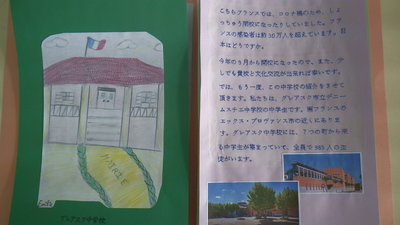 こちらフランスでは、コロナ禍のため、しょ
っちゅう閉校になったりしていました。フラ
ンスの感染者は約10万人を超えています。日
本はどうですか。
今年の9月から開校になったので、また、少
しでも貴校と文化交流が出来れば幸いです。
では、もう一度、この中学校の紹介をさせて
頂きます。私たちは、グレアスク市立デニー
ムステエ中学校の中学生です。南フランスの
エックス・プロヴァンス市の近くにありま
す。グレアスク中学校には、7つの町から来
る中学生が集まっていて、全員で
徒がいます。
MAIRIE
グレアスク中学校